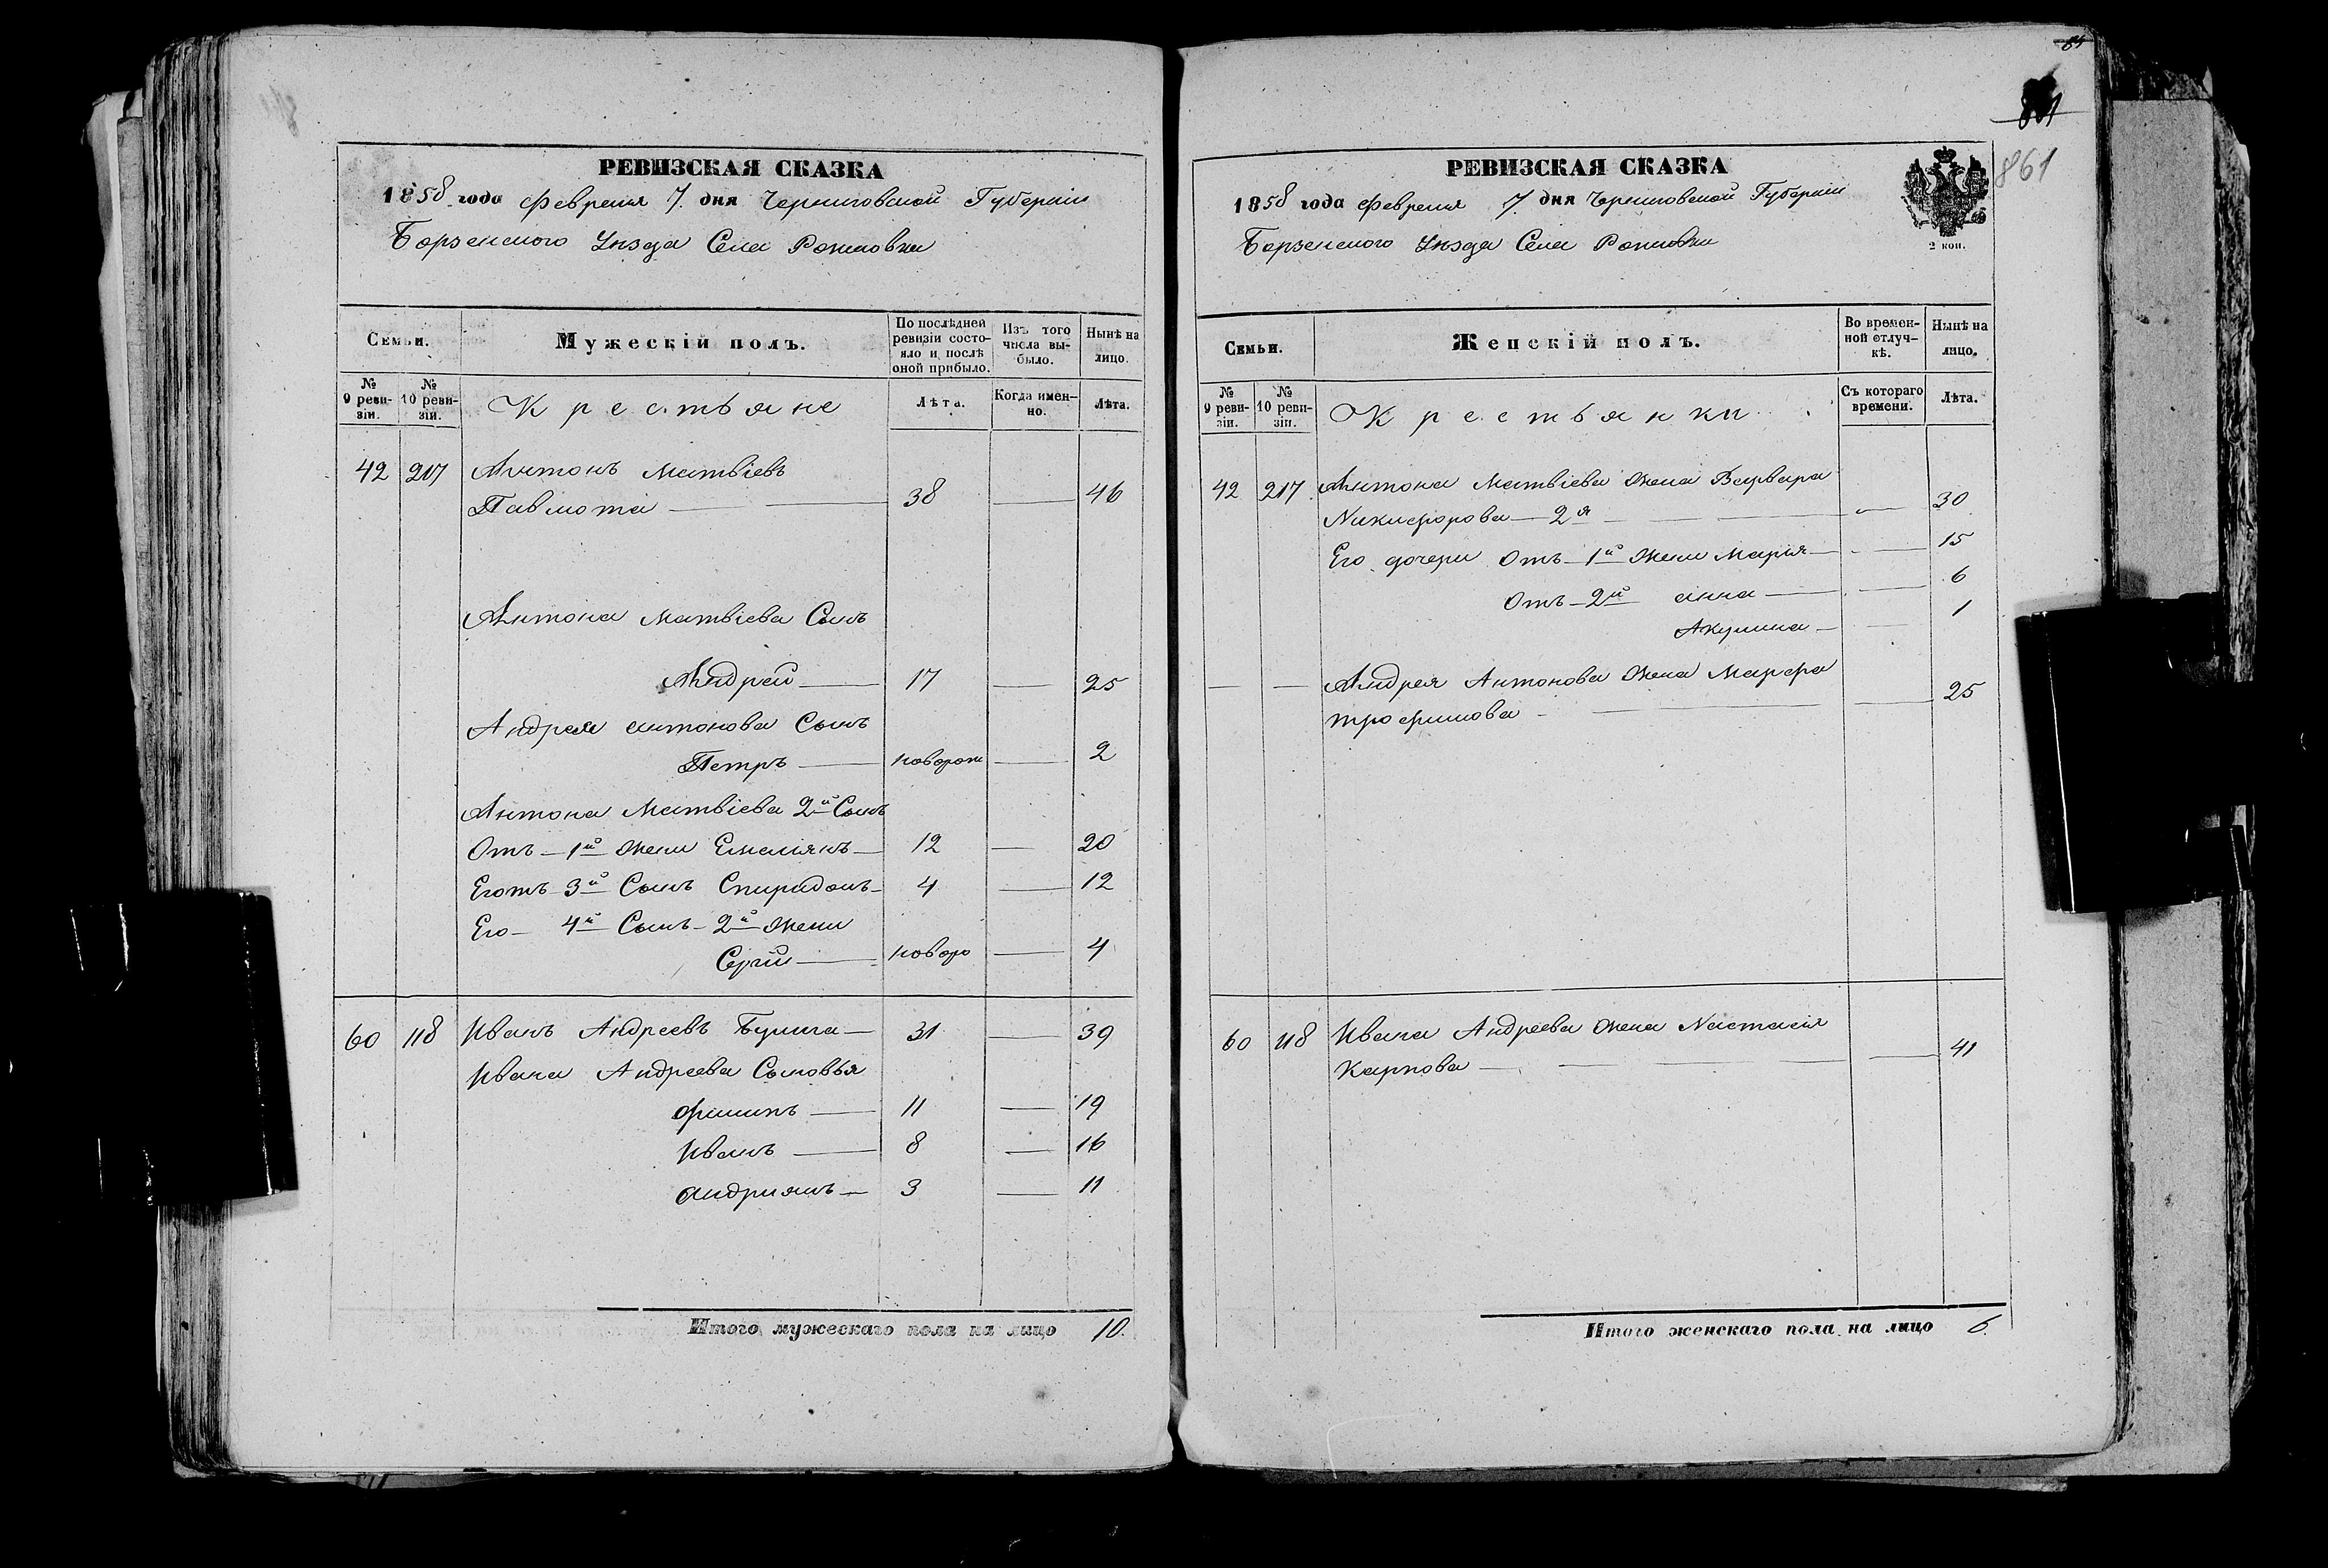 РЕВИЗСКАЯ СКАЗКА
1858 года Февреля 7 дня Черниговской Губернии
Борзенского Уѣзда Села
Семьи.
Мужескій полъ.
По послѣдней ревизіи состояло и послѣ оной прибыло.
Изъ того числа выбыло.
Нынѣ на лицо.
№ 9 ревизіи.
№ 10 ревизіи.
Крестьяне
Лѣта.
Когда именно.
Лѣта.
42 217 Антонъ Матвіевъ
Павлюта — 38 — 46
Антона Матвіева Сынъ
Андрей — 17 — 25
Андрея Антонова Сынъ
Петръ — новорож — 2
Антона Матвіева 2й Сынъ
Отъ 1й жени Емеліянъ — 12 — 20
Егожъ 3й Сынъ Спиридонъ — 4 — 12
Его — 4й Сынъ 2й жени
Сергій — новоро — 4
60 118 Иванъ Андреевъ — 31 — 39
Ивана Андреева Сыновья
Филипъ — 11 — 19
Иванъ — 8 — 16
Андриянъ — 3 — 11
Итого мужескаго пола на лицо 10.
861
РЕВИЗСКАЯ СКАЗКА
1858 года Февреля 7 дня Черниговской Губернии
2 коп.
Борзенского Уѣзда Села
Семьи.
Женскій полъ.
Во временной отлучкѣ.
Нынѣ на лицо.
№ 9 ревизіи.
№ 10 ревизіи.
Крестьянки
Съ котораго времени.
Лѣта.
42 217 Антона Матвіева жена Варвара
Никифорова — 2я — 30
Его дочери отъ 1й жени Марія — 15
Отъ 2й Анна — 6
Акулина — 1
— — Андрея Антонова жена Марфа
Трофимова — 25
60 118 Ивана Андреева жена Настасія
Карпова — 41
Итого женскаго пола на лицо 6.